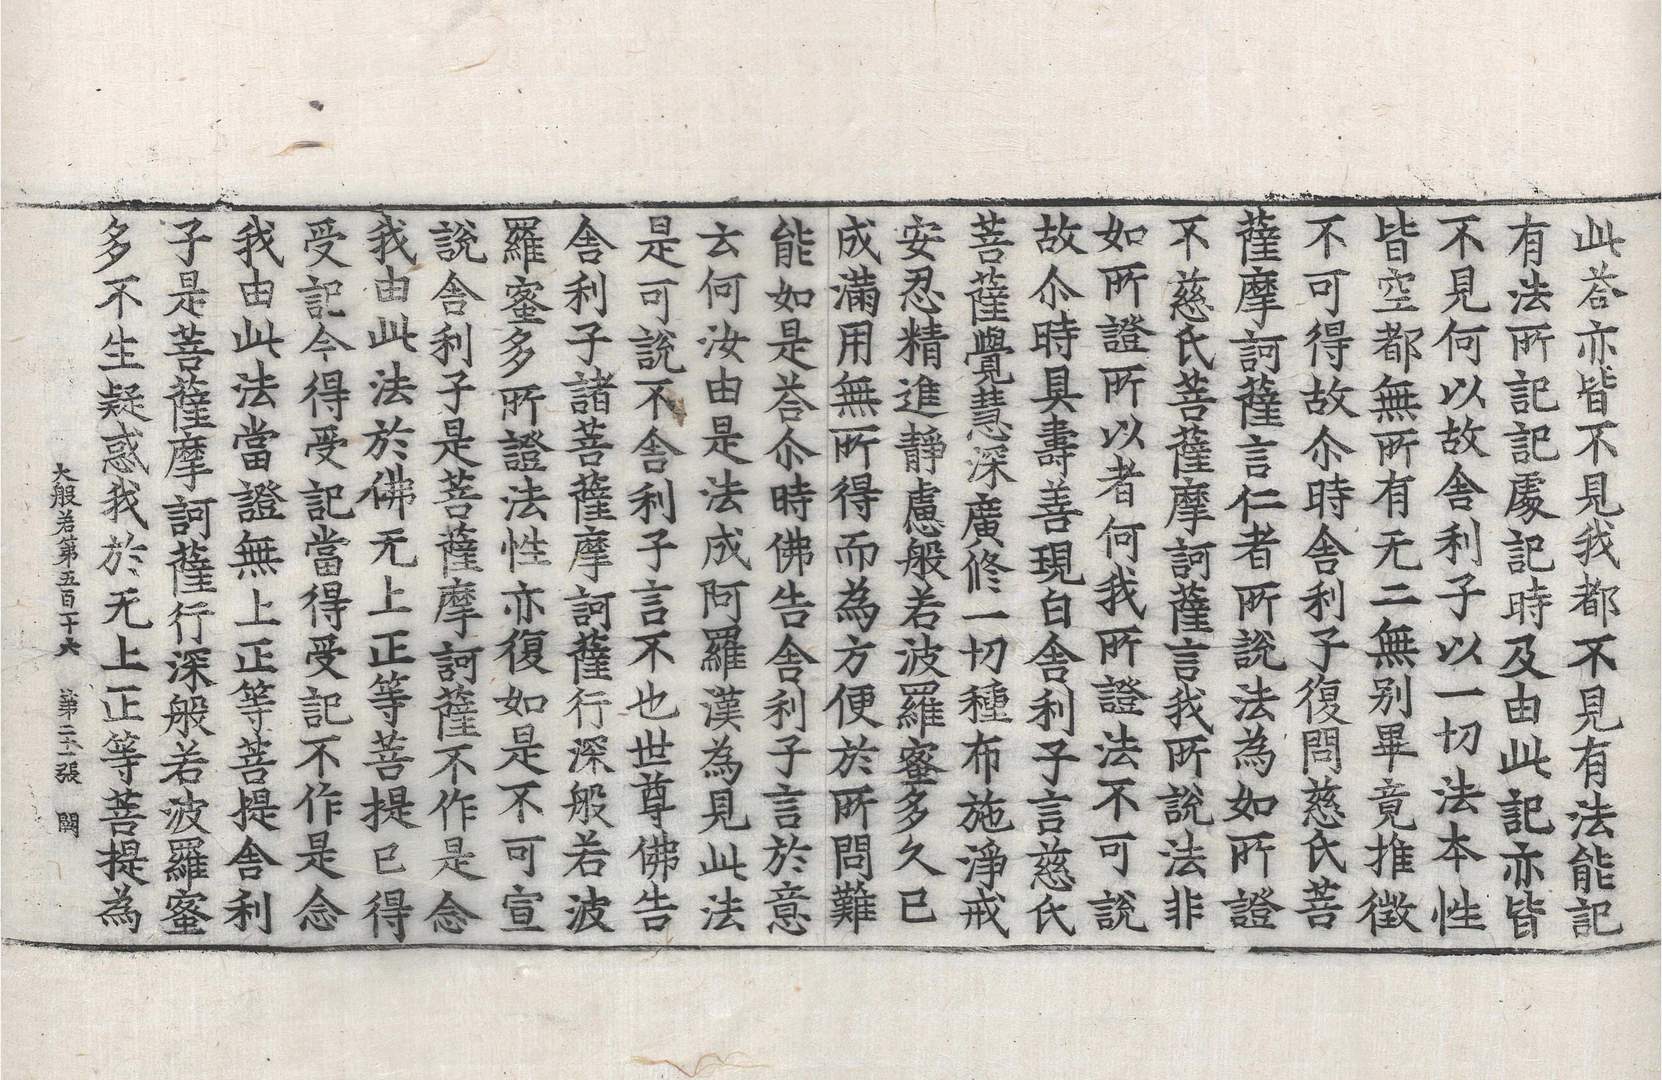 此荅亦皆不見我都不見有法能記
有法所記記處記時及由此記亦皆
不見何以故舍利子以一切法本性
皆空都無所有无二無別畢竟推徵
不可得故尒時舍利子復問慈氏菩
薩摩訶薩言仁者所說法為如所證
不慈氏菩薩摩訶薩言我所說法非
如所證所以者何我所證法不可說
故尒時具壽善現白舍利子言慈氏
菩薩覺慧深廣修一切種布施淨戒
安忍精進靜慮般若波羅蜜多久已
成滿用無所得而為方便於所問難
能如是荅尒時佛告舍利子言於意
云何汝由是法成阿羅漢為見此法
是可說不舍利子言不也世尊佛告
舍利子諸菩薩摩訶薩行深般若波
羅蜜多所證法性亦復如是不可宣
說舍利子是菩薩摩訶薩不作是念
我由此法於佛无上正等菩提已得
受記今得受記當得受記不作是念
我由此法當證無上正等菩提舍利
子是菩薩摩訶薩行深般若波羅蜜
多不生疑惑我於无上正等菩提為
大般若第五百二十六 第二十一張 闕